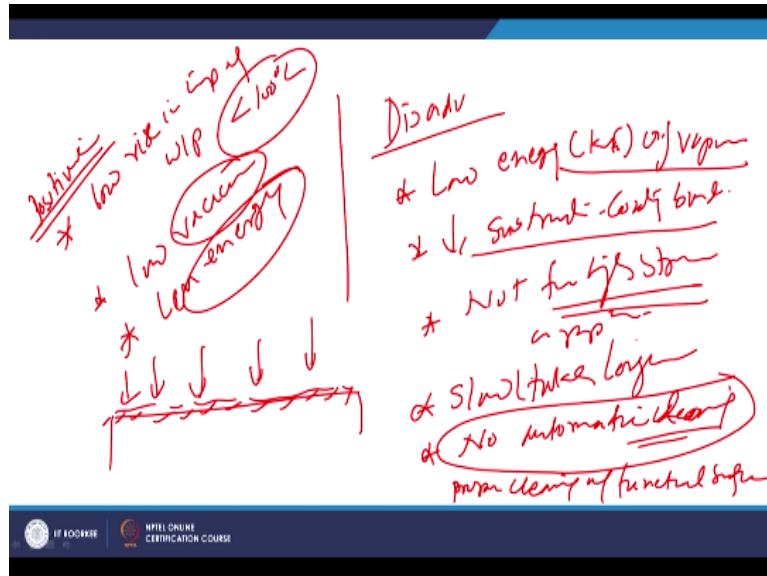 Positive
* low rise in temp of
w/p < 100°C
* low vacuum
* less energy
Disadv
* Low energy (K.E) of vapour
* ↓ Substrate-Coating bond.
* Not for high stress
app
* Slow / takes longer
* No automatic cleaning
proper cleaning of functional surface
IIT ROORKEE
NPTEL ONLINE
CERTIFICATION COURSE